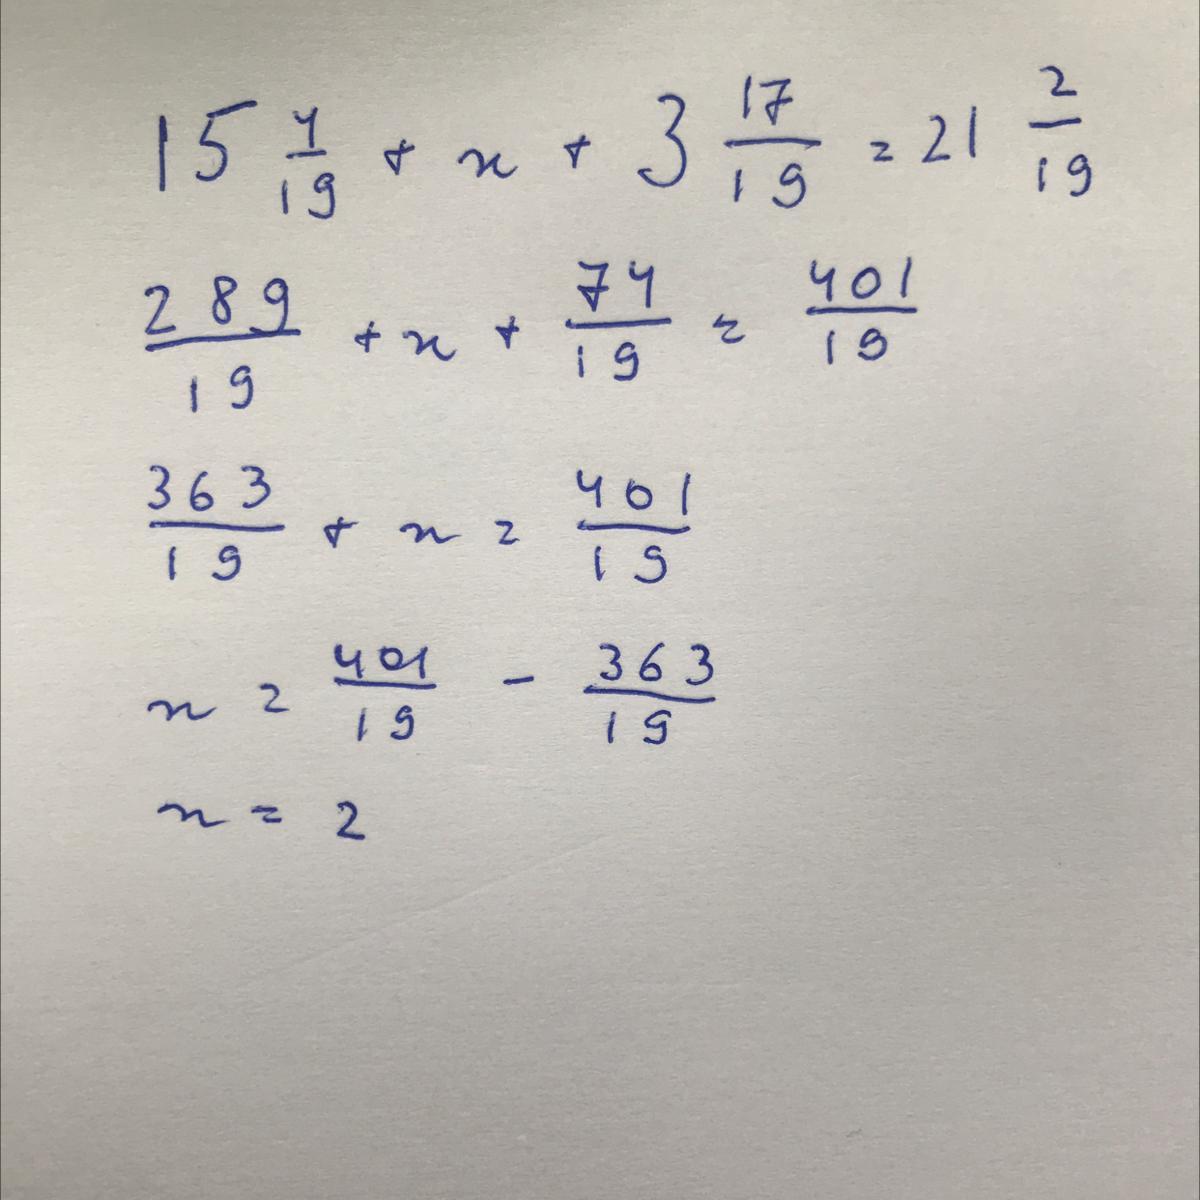 15 4/19 + x + 3 17/19 = 21 2/19
289/19 + x + 74/19 = 401/19
363/19 + x = 401/19
x = 401/19 - 363/19
x = 2